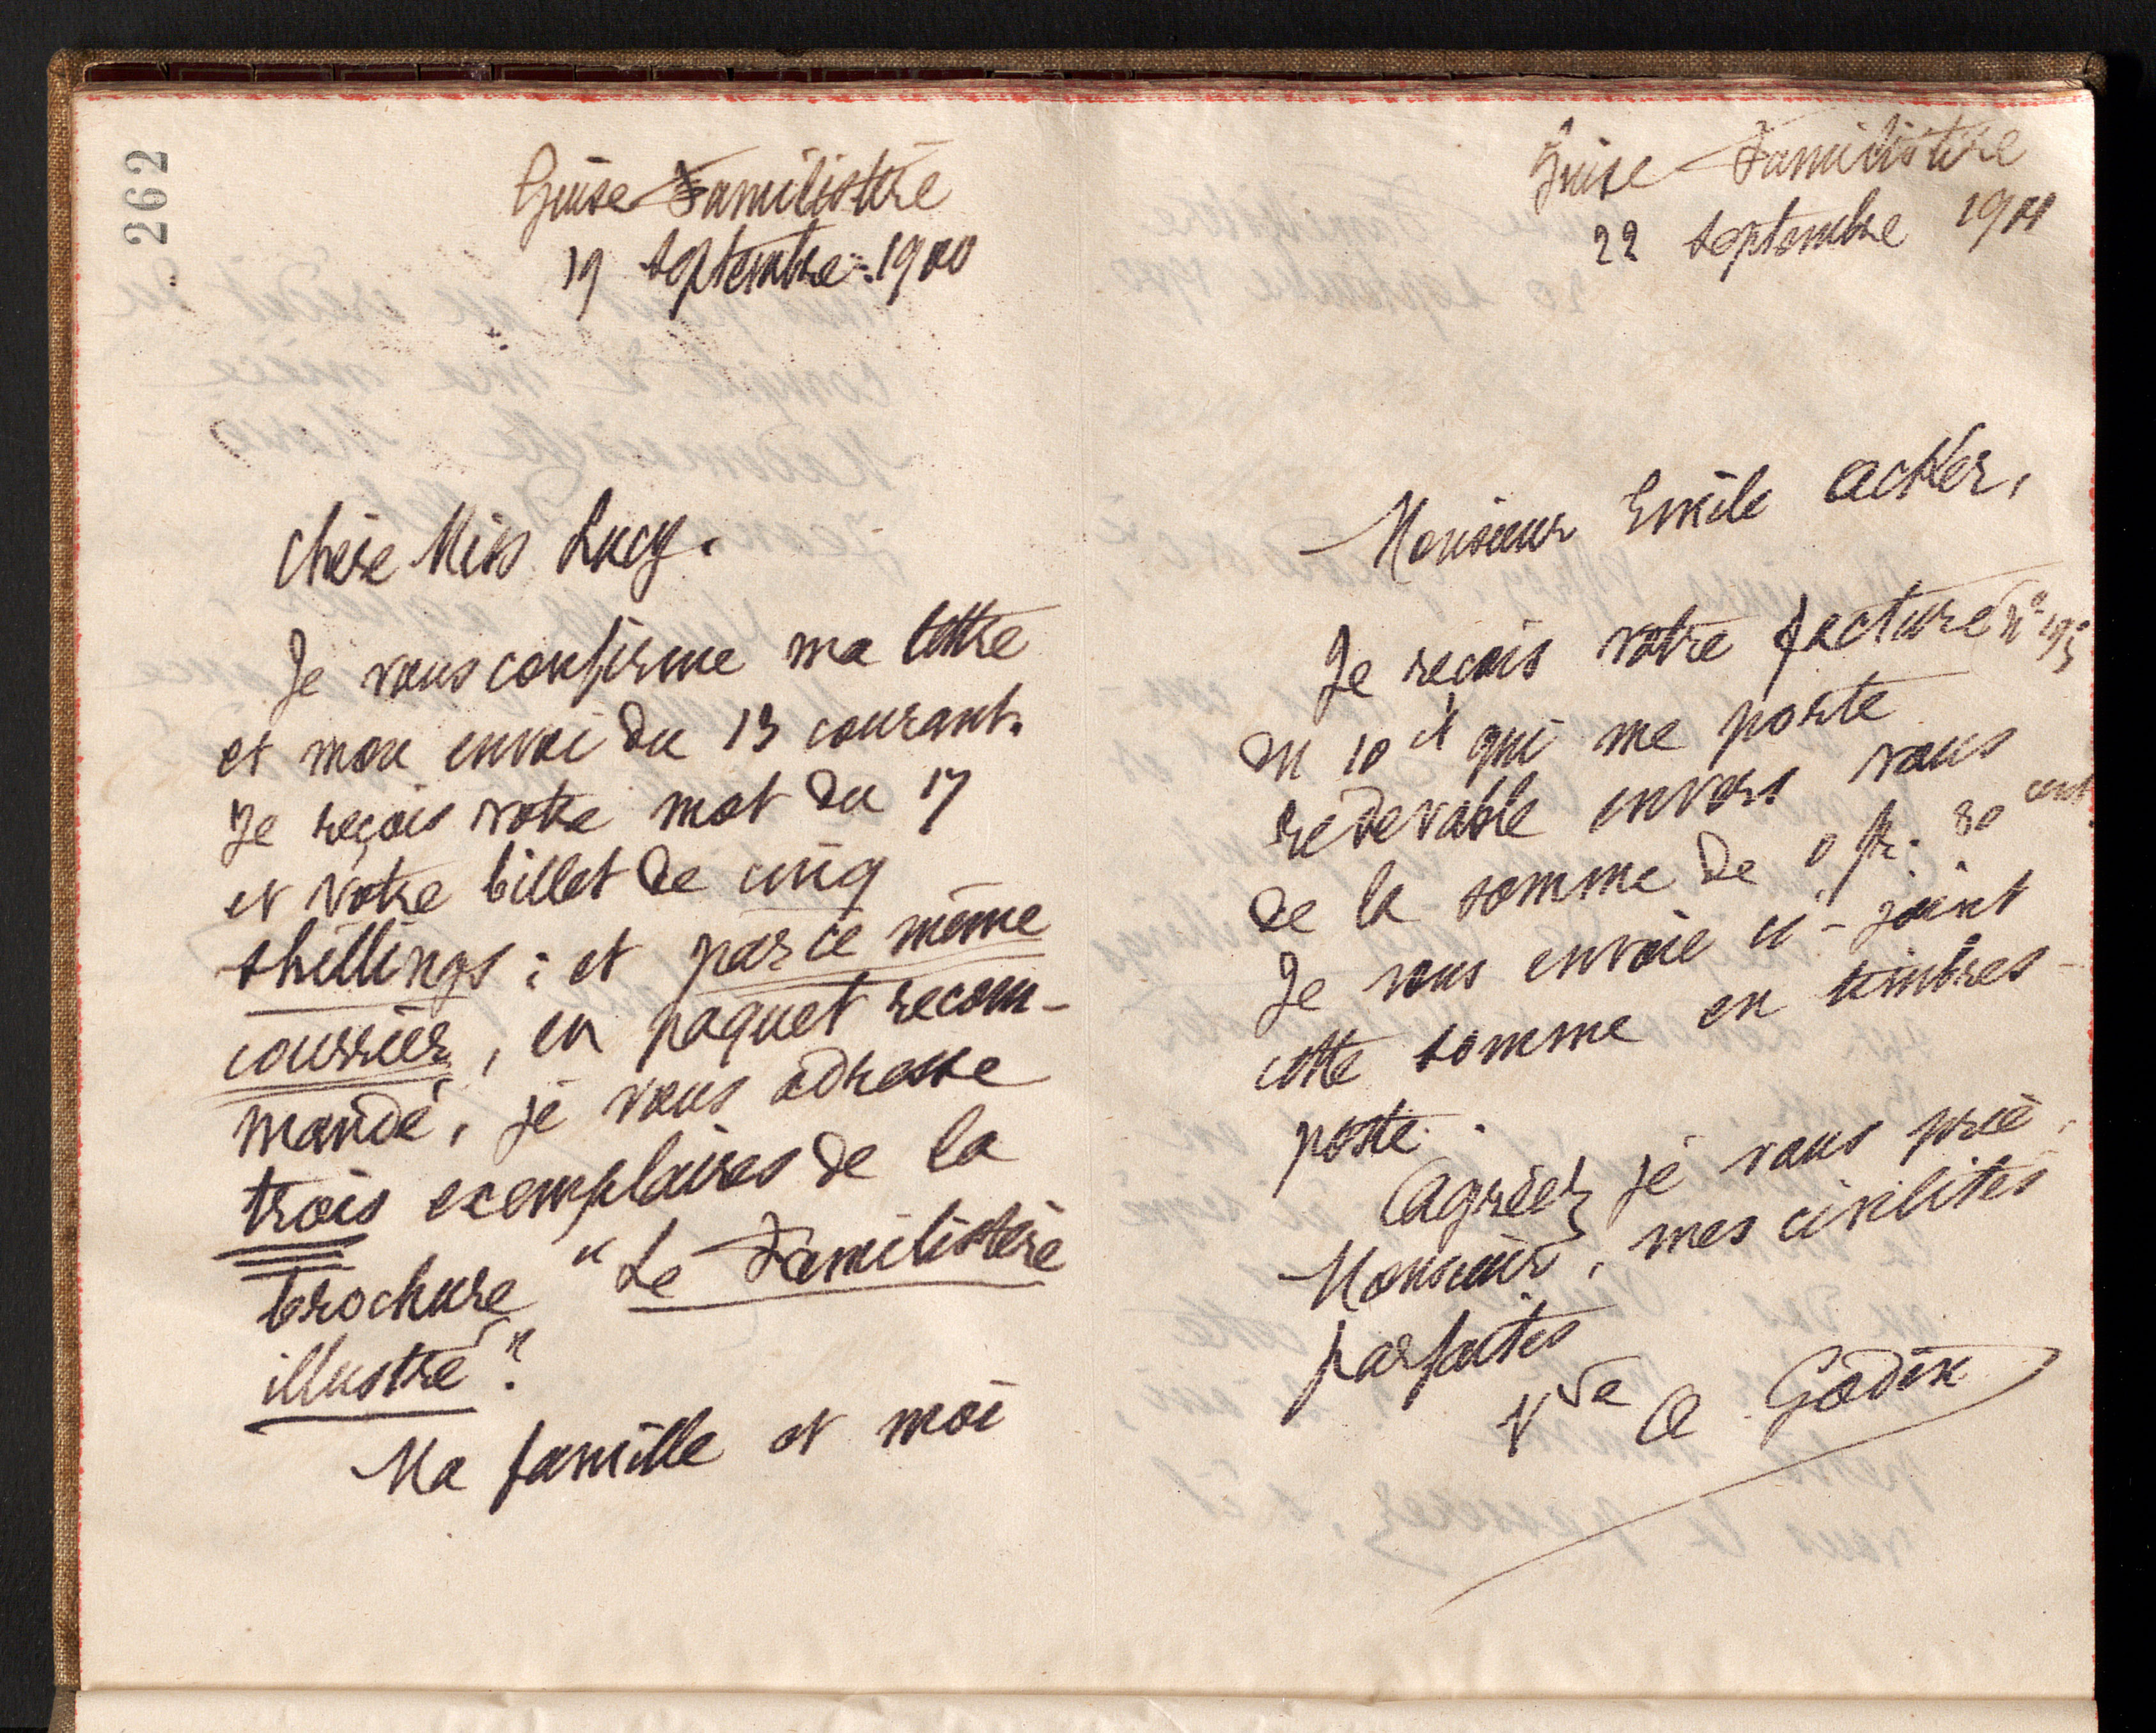 262
Guise Familistère
19 septembre 1900
Chère Miss Lucy.
Je vous confirme ma lettre
et mon envoi du 13 courant.
Je reçois votre mot du 17
et votre billet de cinq
shillings : et par ce même
courrier, en paquet recom-
mandé, je vous adresse
trois exemplaires de la
brochure "Le Familistère
illustré".
Ma famille et moi
Guise Familistère
22 septembre 1900
Monsieur Emile Acker,
Je reçois votre facture n°
du 10 ct qui me porte
redevable envers vous
de la somme de 0 fr. 80 cent.
Je vous envoie ci-joint
cette somme en timbres-
poste.
Agréez je vous prie,
Monsieur, mes civilités
parfaites
Vve A Godin